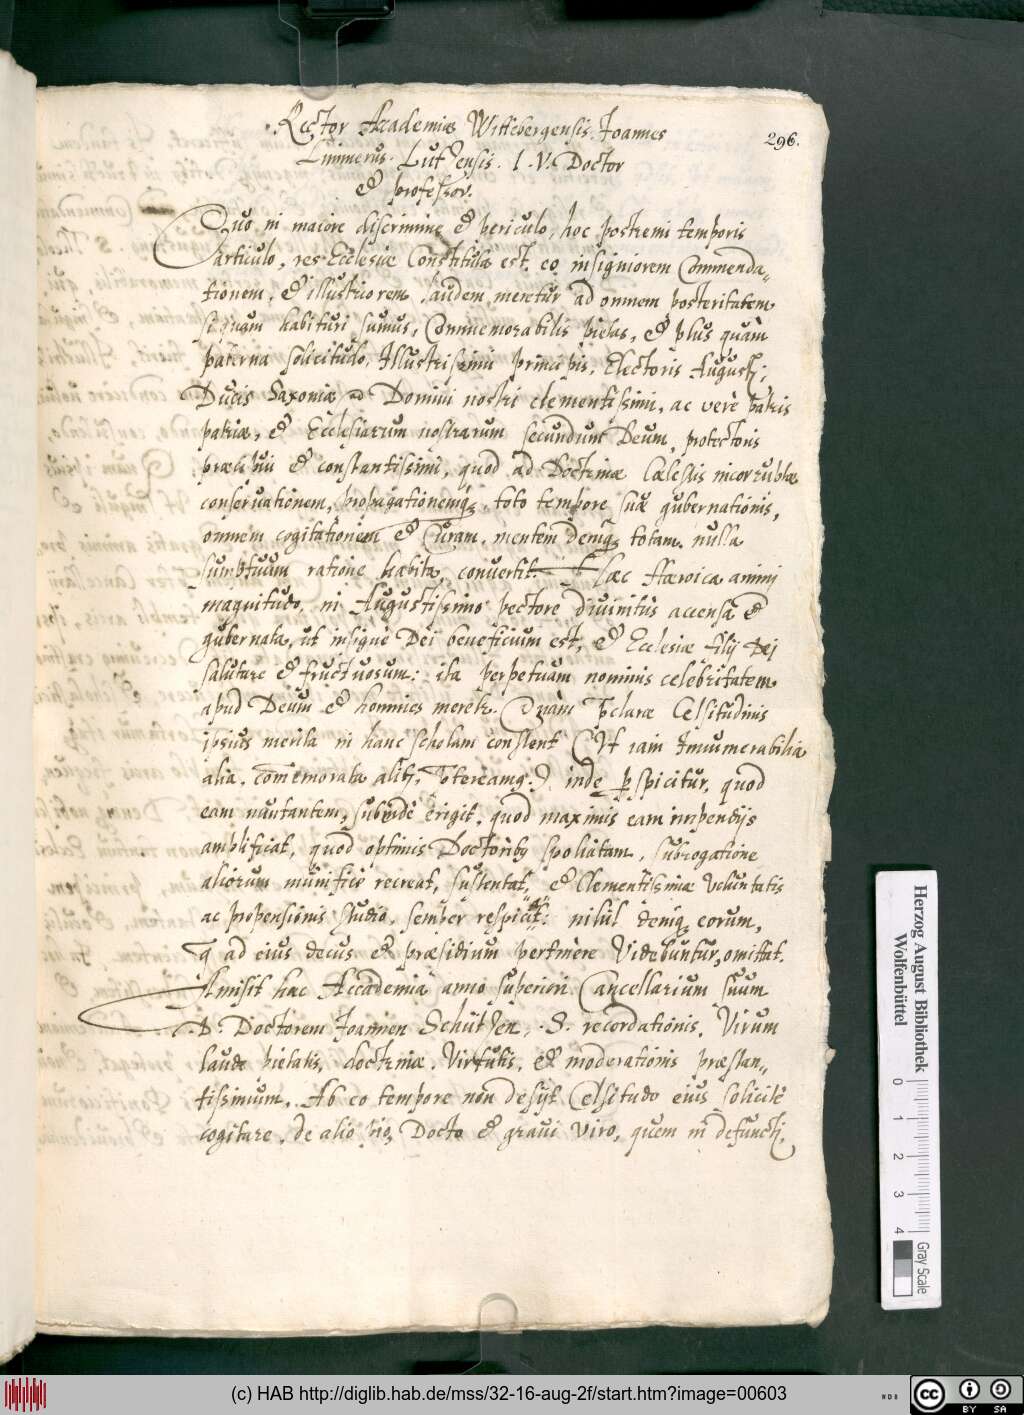 Rector Academiæ Wittebergensis Joannes
296.
Limmerus. Lutzensis. I. V. Doctor
et professor.
Quo in maiore discrimine et periculo, hoc postremi temporis
articulo, res Ecclesiæ Constituta est, eo insigniorem Commenda„
tionem, et illustriorem laudem meretur ad omnem posteritatem
habituri sumus, Commemorabilis pietas, et plus quàm
paterna solicitudo, Illustrissimi principis, Electoris Augusti,
Ducis Saxoniæ Domini nostri clementissimi, ac verè patris
patriæ, et Ecclesiarum nostrarum secundum Deum, protectoris
præcipui et constantissimi, quod ad Doctrinæ Cælestis incorruptæ
conseruationem, propagationemq; toto tempore suæ gubernationis,
omnem cogitationem et Curam, mentem deniq; totam, nulla
sumptuum ratione habita, convertit. Hæc Hæroica animi
magnitudo, in Augustissimo pectore divinitùs accensa et
gubernata, ut insigne Dei beneficium est, et Ecclesiæ filij Dei
salutare et fructuosum: ita perpetuam nominis celebritatem
apud Deum et homines meretur. Quàm præclara Celsitudinis
ipsius merita in hanc scholam constent (Ut iam innumerabilia
alia, commemorata aliàs, prætereamq:) inde perspicitur, quod
eam nutantem, subinde erigit, quod maximis eam impendijs
amplificat, quod optimis Doctoribus spoliatam, subrogatione
aliorum munifice recreat, sustentat, et Clementissimæ voluntatis
ac propensionis studio, semper respicit: nihil deniq; eorum,
q ad eius decus et præsidium pertinere Videbuntur, omittat.
Amisit hæc Accademia anno superiori Cancellarium suum
D. Doctorem Joannen Schützen, S. recordationis, Virum
laude pietatis, doctrinæ, Virtutis, et moderationis præstan„
tissimum. Ab eo tempore non desijt Celsitudo eius solicitè
cogitare, de alio pio, Docto et graui viro, quem in defuncti
Herzog August Bibliothek
Wolfenbüttel
0 1 2 3 4
Gray Scale
(c) HAB http://diglib.hab.de/mss/32-16-aug-2f/start.htm?image=00603
WDB
cc BY SA